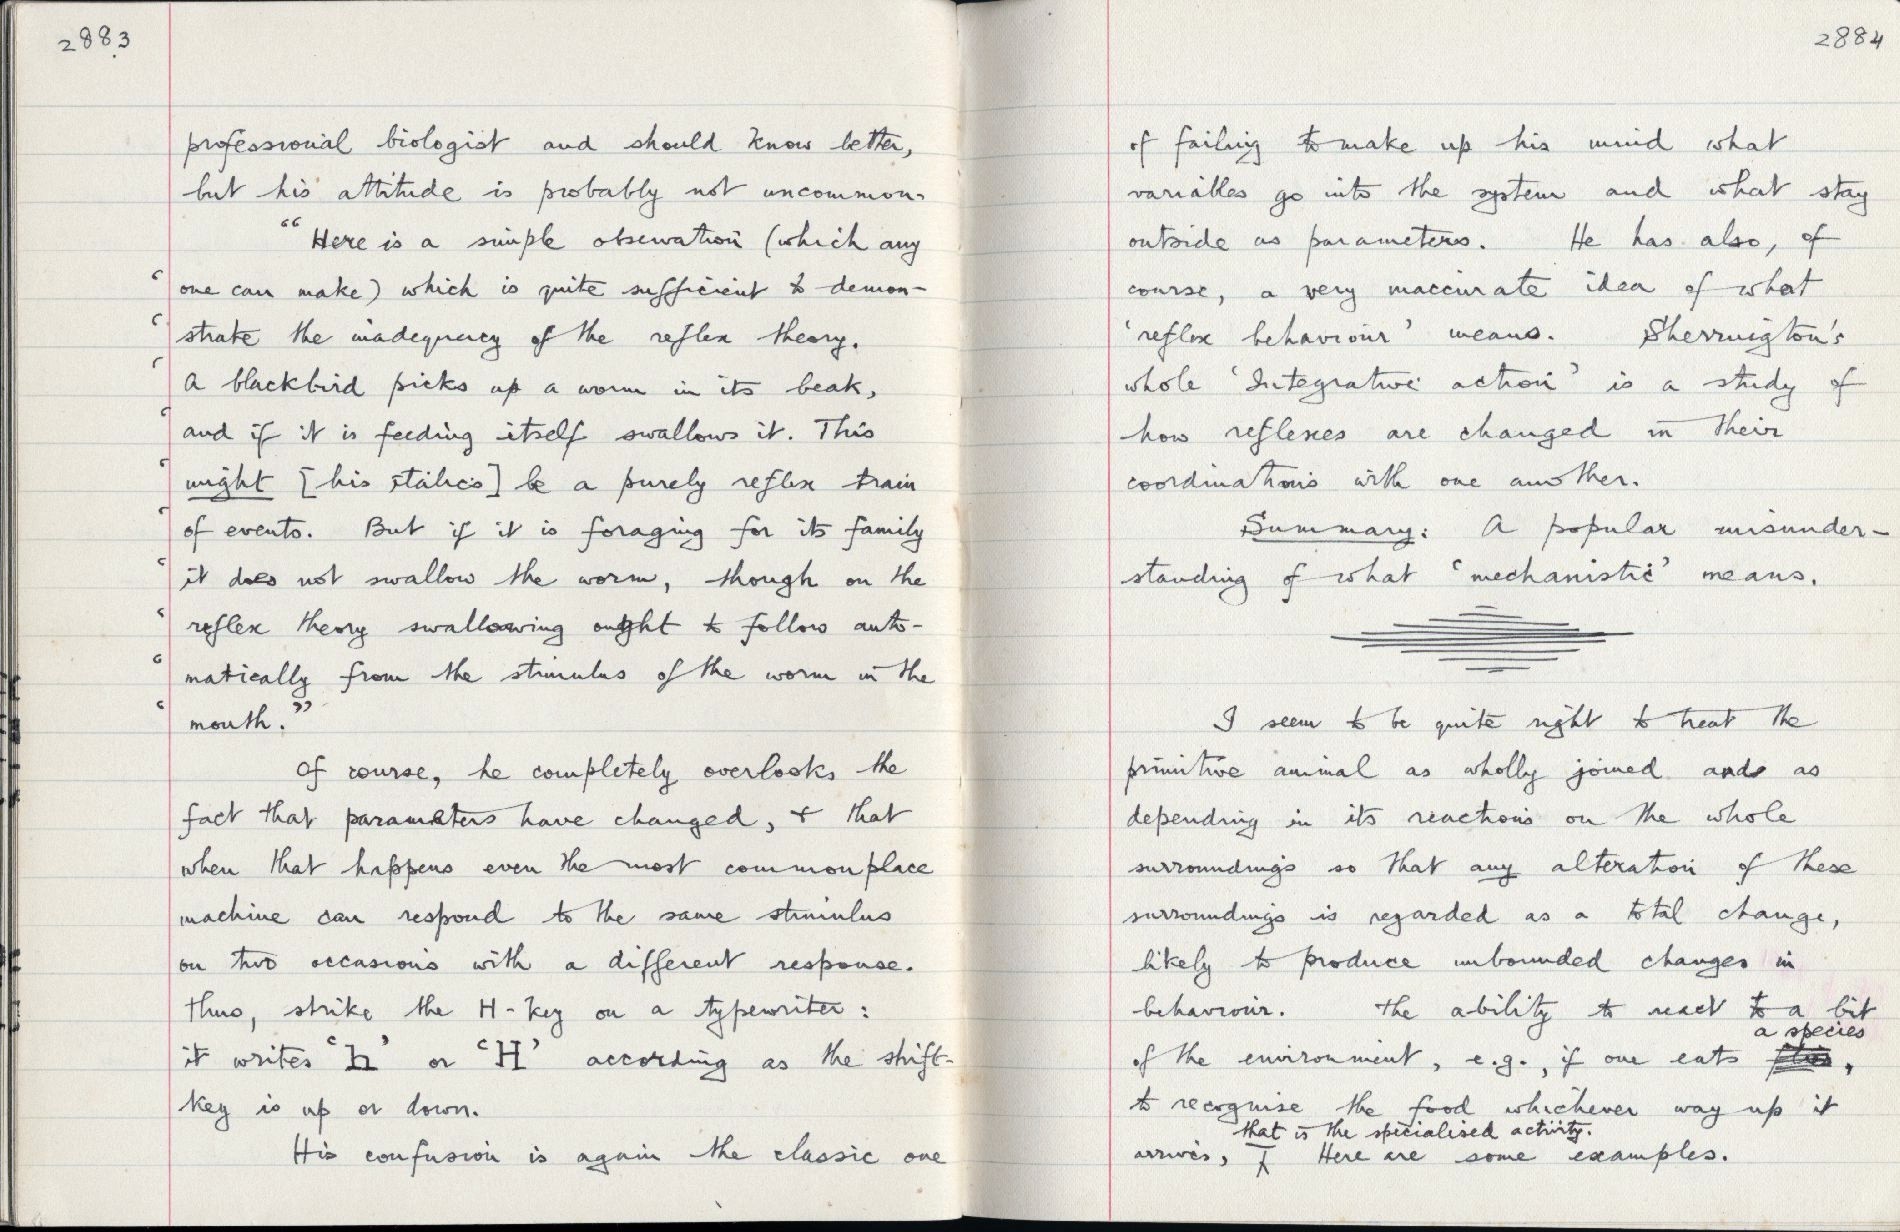 2883
professional biologist and should know better,
but his attitude is probably not uncommon.
“Here is a simple observation (which any
‘ one can make) which is quite sufficient to demon-
‘ strate the inadequacy of the reflex theory.
‘ A blackbird picks up a worm in its beak,
‘ and if it is feeding itself swallows it. This
‘ might [his italics] be a purely reflex train
‘ of events. But if it is foraging for its family
‘ it does not swallow the worm, though on the
‘ reflex theory swallowing ought to follow auto-
‘ matically from the stimulus of the worm in the
‘ mouth.”
Of course, he completely overlooks the
fact that parameters have changed, & that
when that happens even the most commonplace
machine can respond to the same stimulus
on two occasions with a different response.
Thus, strike the H-key on a typewriter:
it writes ‘h’ or ‘H’ according as the shift-
key is up or down.
His confusion is again the classic one
2884
of failing to make up his mind what
variables go into the system and what stay
outside as parameters. He has also, of
course, a very inaccurate idea of what
‘reflex behaviour’ means. Sherrington's
whole ‘Integrative action’ is a study of
how reflexes are changed in their
coordinations with one another.
Summary: A popular misunder-
standing of what ‘mechanistic’ means.
I seem to be quite right to treat the
primitive animal as wholly joined and as
depending in its reactions on the whole
surroundings so that any alteration of these
surroundings is regarded as a total change,
likely to produce unbounded changes in
behaviour. The ability to react to a bit
a species
of the environment, e.g., if one eats ,
to recognise the food whichever way up it
that is the specialised activity.
arrives, Here are some examples.